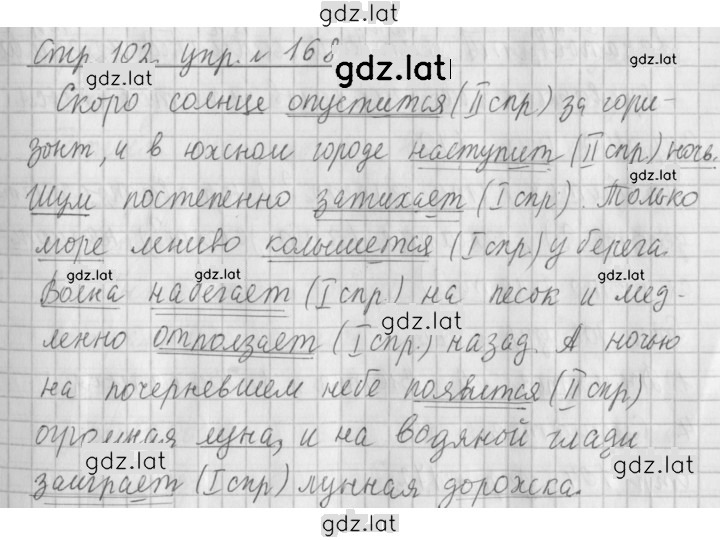 gdz.lat
Стр. 102. упр. № 168
gdz.lat
gdz.lat
Скоро солнце опустится (II спр) за гори-
зонт, и в южном городе наступит (II спр.) ночь.
Шум постепенно затихает (I спр). Только
море лениво колышется (I спр) у берега.
gdz.lat gdz.lat gdz.lat
Волна набегает (I спр.) на песок и мед-
gdz.lat
ленно отползает (I спр.) назад. А ночью
на почерневшем небе появится (II спр)
огромная луна, и на водяной глади
gdz.lat gdz.lat
заиграет (I спр) лунная дорожка.
gdz.lat